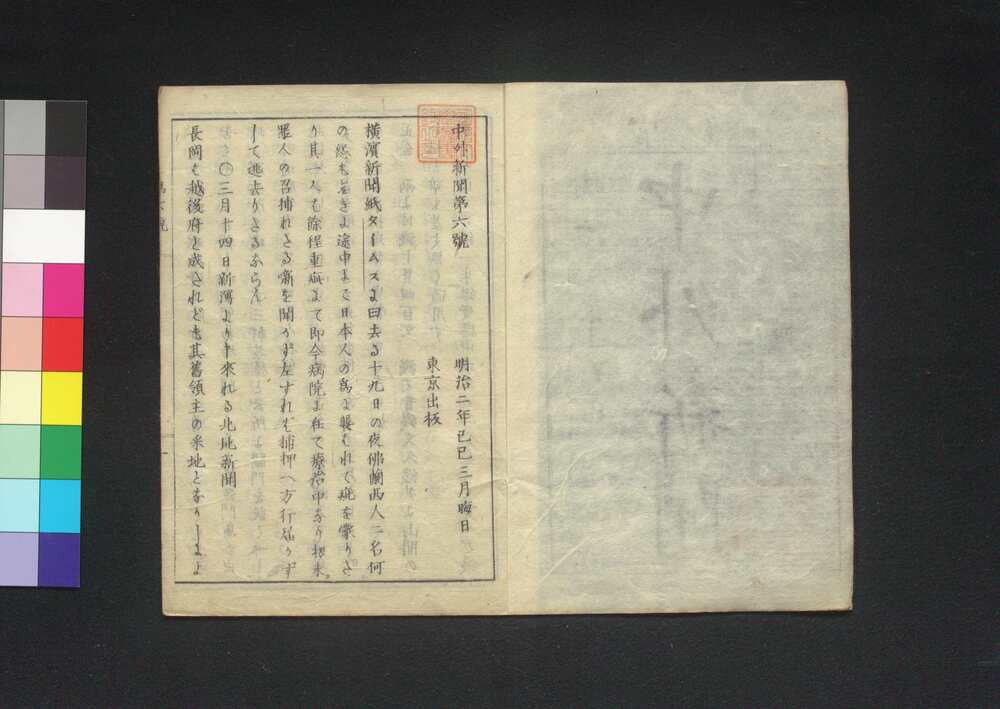 中外新聞第六號
明治二年己巳三月晦日
東京出板
横濱新聞紙タイムスに曰去る十九日の夜佛蘭西人二名何
の恐もなきに途中にて日本人の為に襲はれて疵を蒙りさ
り其一人は餘程重疵にて即今病院に在て療治中なり
罪人の召捕れたる噺を聞かず左すれば捕押へ方行届かず
して逃去りたるならん
○三月十四日新潟より來れる北地新聞
長岡も越後府と成されども其舊領主の釆地となりしに